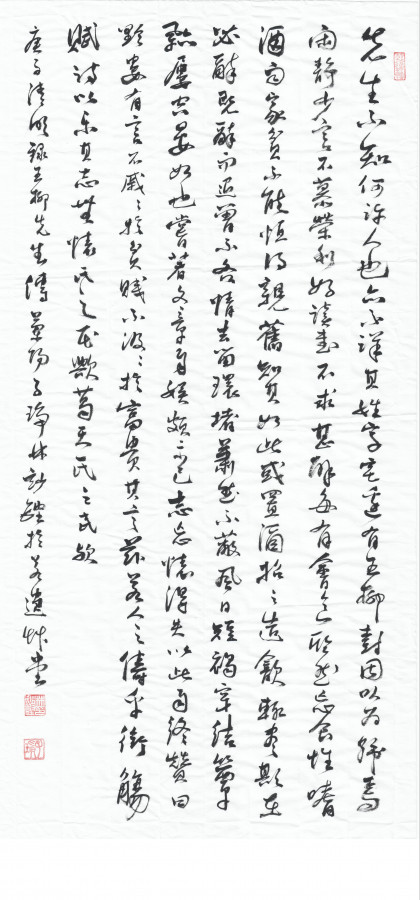 先生不知何許人也亦不詳其姓字宅邊有五柳樹因以為號焉
閑靜少言不慕榮利好讀書不求甚解每有會意欣然忘食性嗜
酒而家貧不能恒得親舊知其如此或置酒招之造飲輒盡期在
必醉既醉而退曾不吝情去留環堵蕭然不蔽風日短褐穿結簞
瓢屢空晏如也嘗著文章自娛頗示己志忘懷得失以此自終贊曰
黔婁有言不戚〻於貧賤不汲〻於富貴其言茲若人之儔乎銜觴
賦詩以樂其志無懷氏之民歟葛天氏之民歟
庚子清明錄五柳先生傳